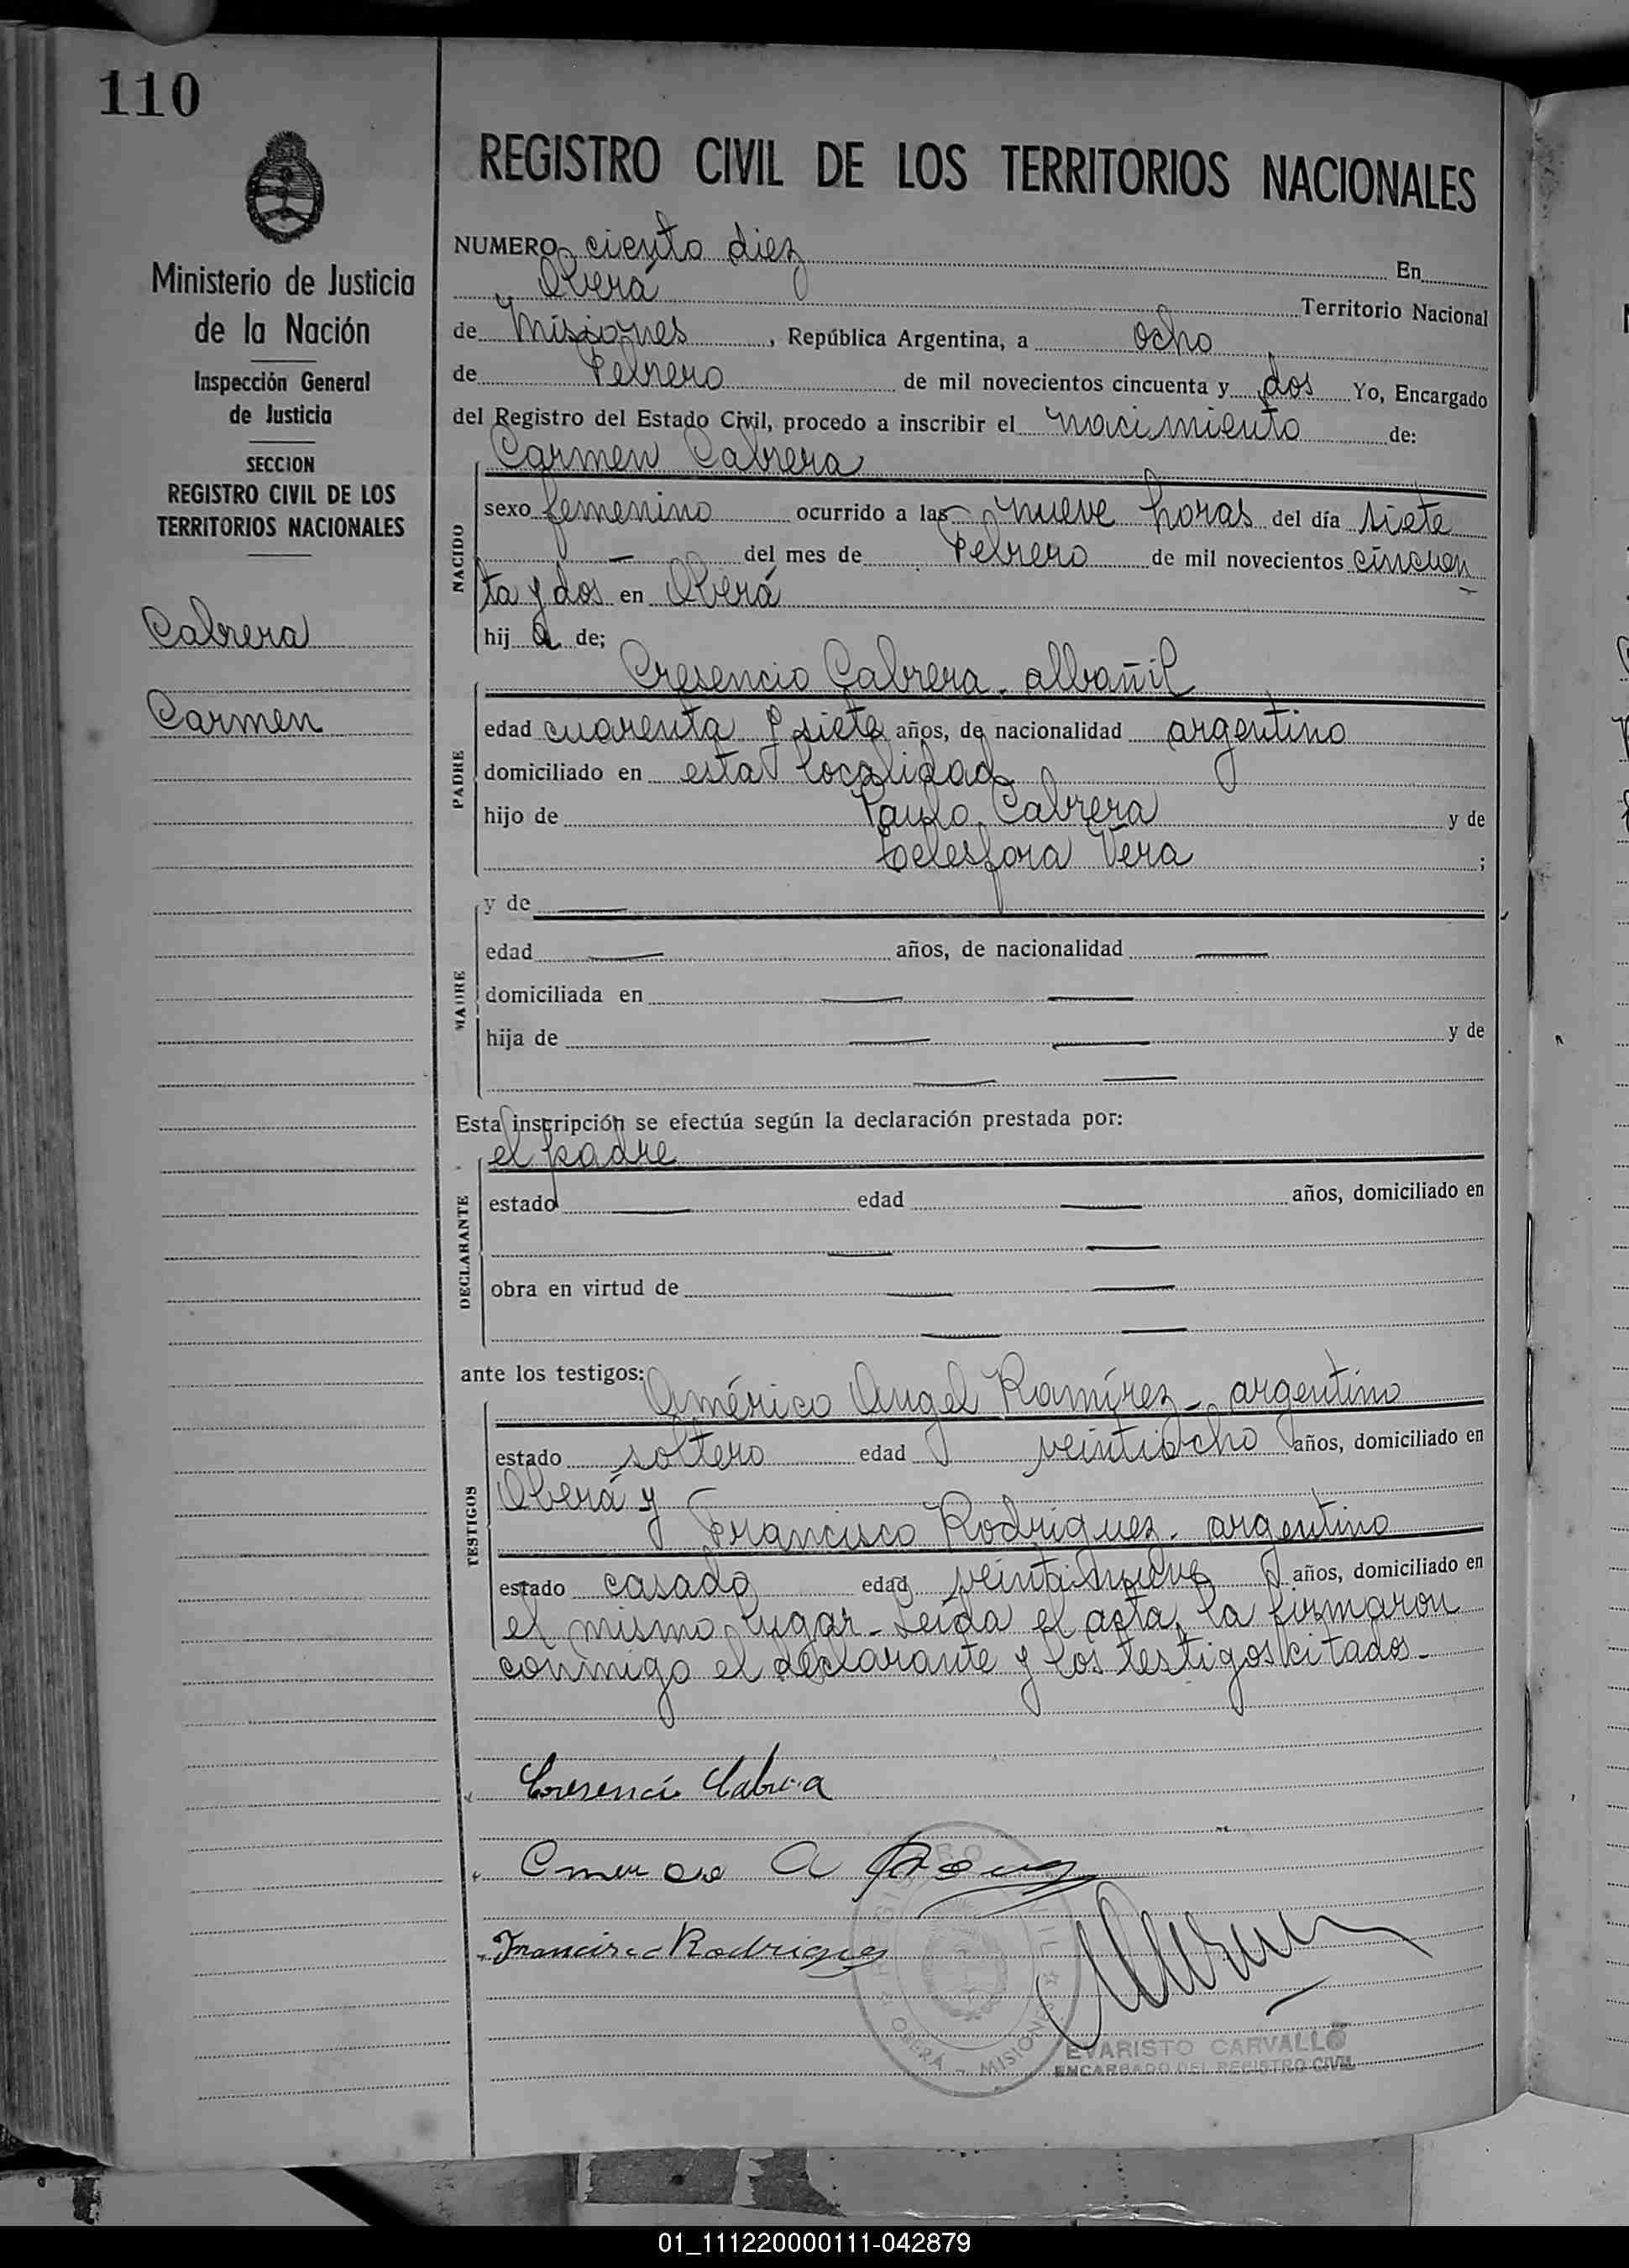 110
Ministerio de Justicia
de la Nación
Inspección General
de Justicia
SECCION
REGISTRO CIVIL DE LOS
TERRITORIOS NACIONALES
Cabrera
Carmen
REGISTRO CIVIL DE LOS TERRITORIOS NACIONALES
NUMERO ciento diez En
Oberá Territorio Nacional
de Misiones, República Argentina, a ocho
de Febrero de mil novecientos cincuenta y dos Yo, Encargado
del Registro del Estado Civil, procedo a inscribir el nacimiento de:
Carmen Cabrera
NACIDO
sexo femenino ocurrido a las nueve horas del día siete
— del mes de Febrero de mil novecientos cincuen
ta y dos en Oberá
hij a de;
Cresencio Cabrera - albañil
PADRE
edad cuarenta y siete años, de nacionalidad argentino
domiciliado en esta localidad
hijo de Paulo Cabrera y de
Telesfora Vera ;
MADRE
y de —
edad — años, de nacionalidad —
domiciliada en — —
hija de — — y de
— —
Esta inscripción se efectúa según la declaración prestada por:
el padre
DECLARANTE
estado — edad — años, domiciliado en
— —
obra en virtud de — —
— —
ante los testigos: Américo Angel Ramírez - argentino
TESTIGOS
estado soltero edad veintiocho años, domiciliado en
Oberá y
Francisco Rodriguez - argentino
estado casado edad años, domiciliado en
el mismo lugar - Leída el acta, la firmaron
conmigo el declarante y los testigos citados -
Cresencio Cabrera
Francisco Rodriguez
REGISTRO CIVIL
OBERÁ - MISIONES
EVARISTO CARVALLO
ENCARGADO DEL REGISTRO CIVIL
01_111220000111-042879